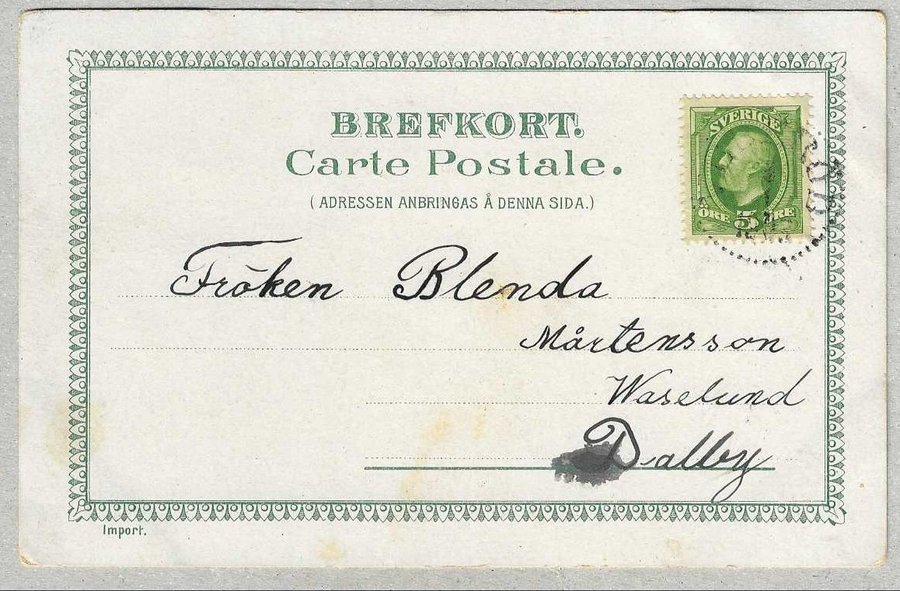 BREFKORT.
Carte Postale.
( ADRESSEN ANBRINGAS Å DENNA SIDA.)
SVERIGE
ÖRE 5 ÖRE
Fröken Blenda
Mårtensson
Waselund
Dalby
Import.